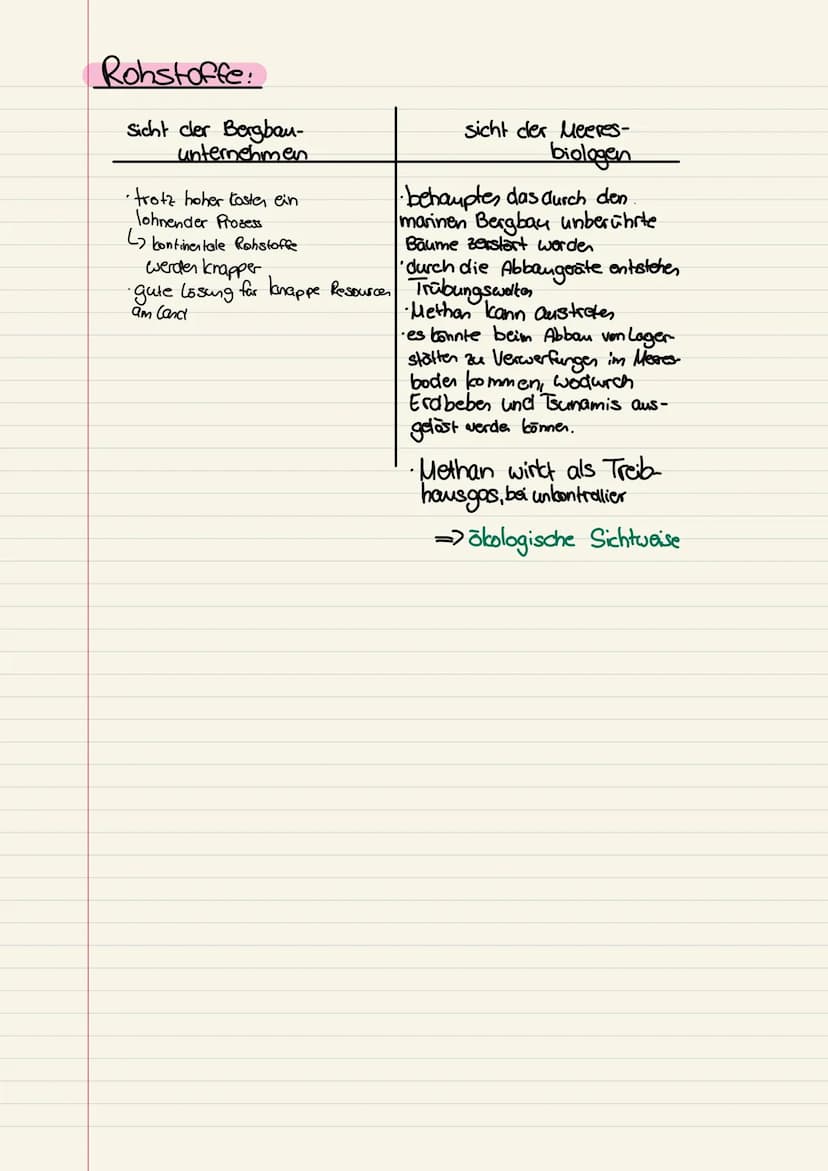 Rohstoffe:
sicht der Bergbau-
unternehmen
· trotz hoher kosten ein
lohnender Prozess
↳ kontinentale Rohstoffe
werden knapper
· gute Lösung für knappe Resourcen
am Land
sicht der Meeres-
biologen
· behaupten das durch den
marinen Bergbau unberührte
Bäume zerstört werden
· durch die Abbaugeräte entstehen
Trübungswolken
· Methan kann austreten
· es könnte beim Abbau von Lager-
stätten zu Verwerfungen im Meeres-
boden kommen, wodurch
Erdbeben und Tsunamis aus-
gelöst werden können.
· Methan wirkt als Treib-
hausgas, bei unkontrollier
=> ökologische Sichtweise